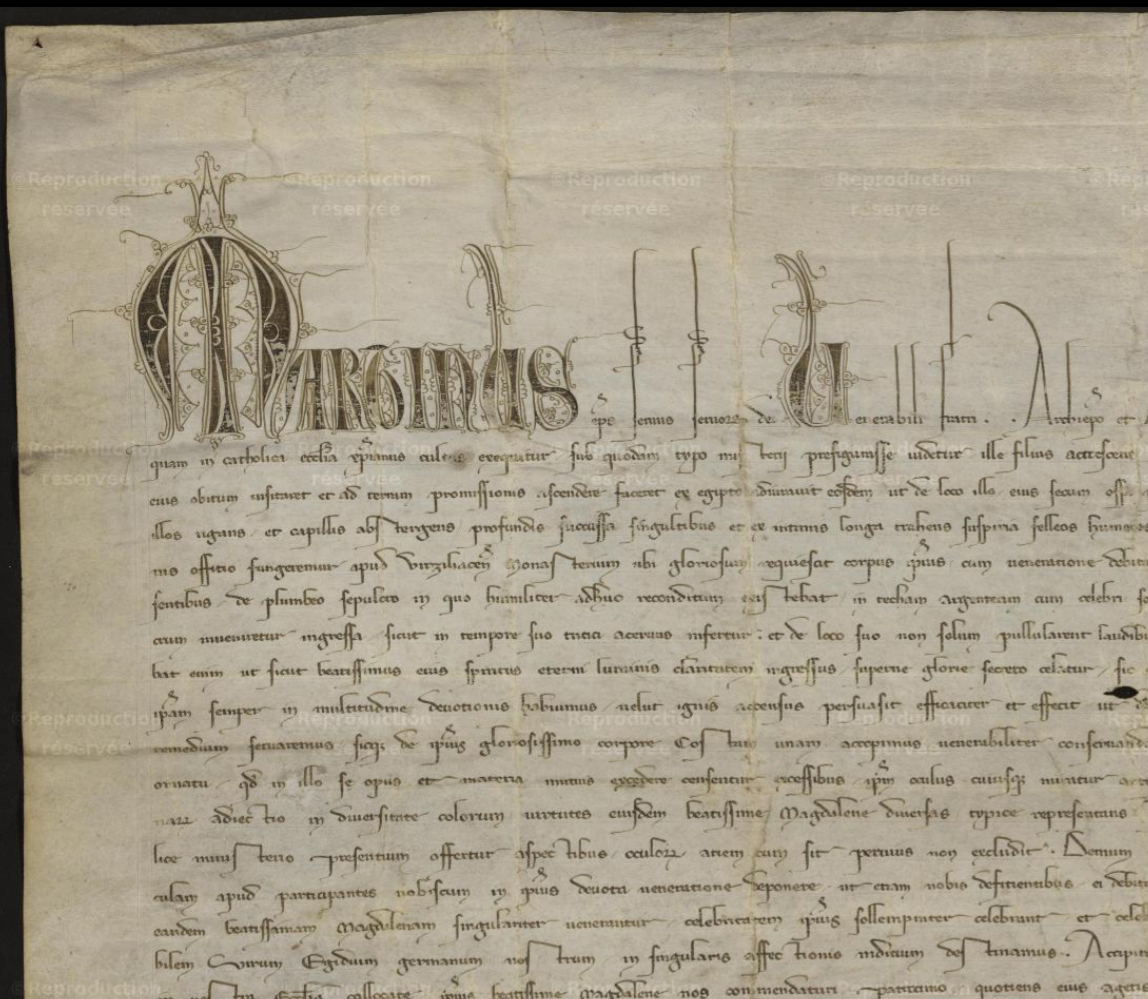 MARTINUS ep̄s seruus seruor̄ dei Uenerabili fratri . . Archiep̄o et
quam in catholica eccl̄ia xp̄ianus cultus exequitur sub quodam typo misterii prefigurasse uidetur ille filius accrescens
eius obitum uisitaret et ad terram promissionis ascendere faceret ex egipto adiurauit eosdem ut de loco illo eius secum ossa
illos rigans et capillis abstergens profundis succussa singultibus et ex intimis longa trahens suspiria felleos humores
nis officio fungeremur apud Virziliacen̄ Monasterium ubi gloriosum requiescit corpus ip̄ius cum ueneratione debita
sentibus de plumbeo sepulcro in quo humiliter adhuc reconditum existebat in techam argenteam cum celebri
ceum inueniretur ingressa sicut in tempore suo tritici aceruus infertur : et de loco suo non solum pullularent laudibus
bat enim ut sicut beatissimus eius spiritus eterni luminis claritatem ingressus superne glorie secreto celatur sic
ip̄am semper in multitudine deuotionis habuimus uelut ignis accensus persuasit efficaciter et effecit ut
remedium seruaremus sicq; de ip̄ius gloriosissimo corpore Costam unam accepimus uenerabiliter conseruand
ornatu qd̄ in illo se opus et materia mutuis excedere censentur excessibus ip̄m oculus cuiusq; miratur
narr adiectio in diuersitate colorum uirtutes eiusdem beatissime Magdalene diuersas typice representans
lice ministerio presentium offertur aspectibus oculor̄ aciem cum sit peruius non excludit . Demum
culam apud participantes nobiscum in ip̄ius deuota ueneratione deponere ut etiam nobis deficientibus ei debit
eandem beatissimam Magdalenam singulariter uenerantur celebritatem ip̄ius sollempniter celebrant et celeb
bilem Virum Egidium germanum nostrum in singularis affectionis indicium destinamus . Accipit
Eccl̄ia collocate ip̄ius beatissime Magdalene nos commendaturi patrocinio quotiens eius
©Reproduction réservée